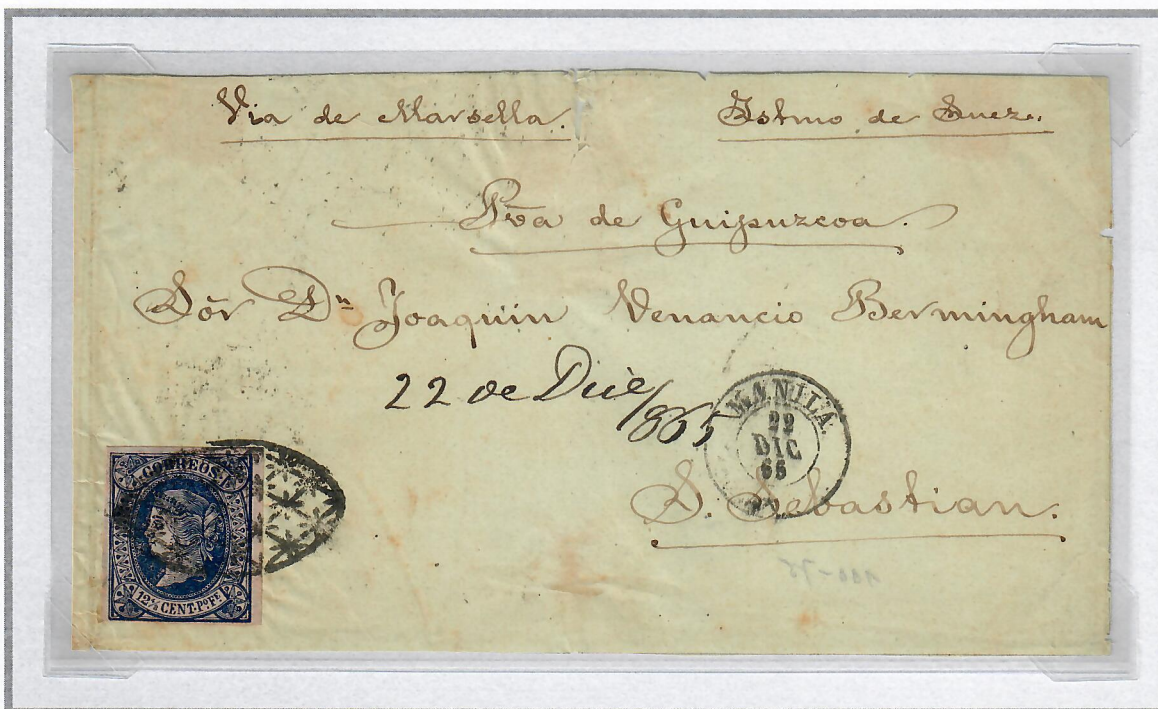 Via de Marsella. Istmo de Suez.
Prōa de Guipuzcoa.
Sōr Dⁿ Joaquin Venancio Bermingham
22 de Dice/865
MANILA
22
DIC
65
S. Sebastian.
CORREOS
12⁴⁄₈ CENT. Pº Fº